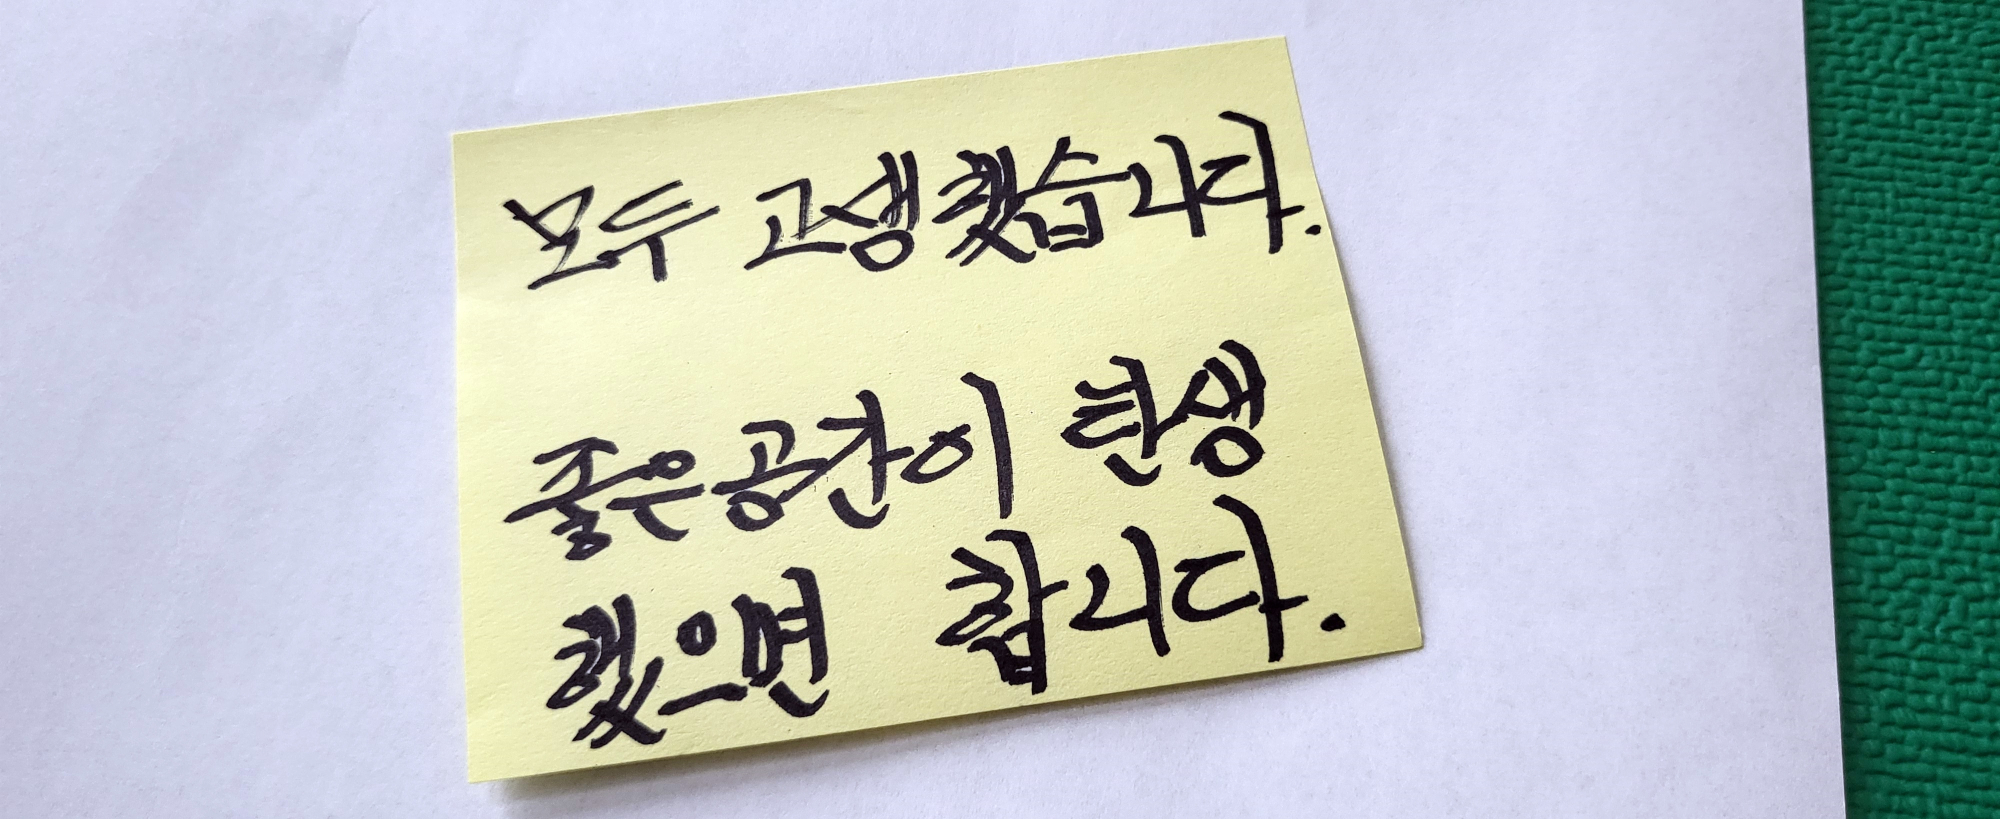 모두 고생했습니다.
좋은공간이 탄생
했으면 합니다.